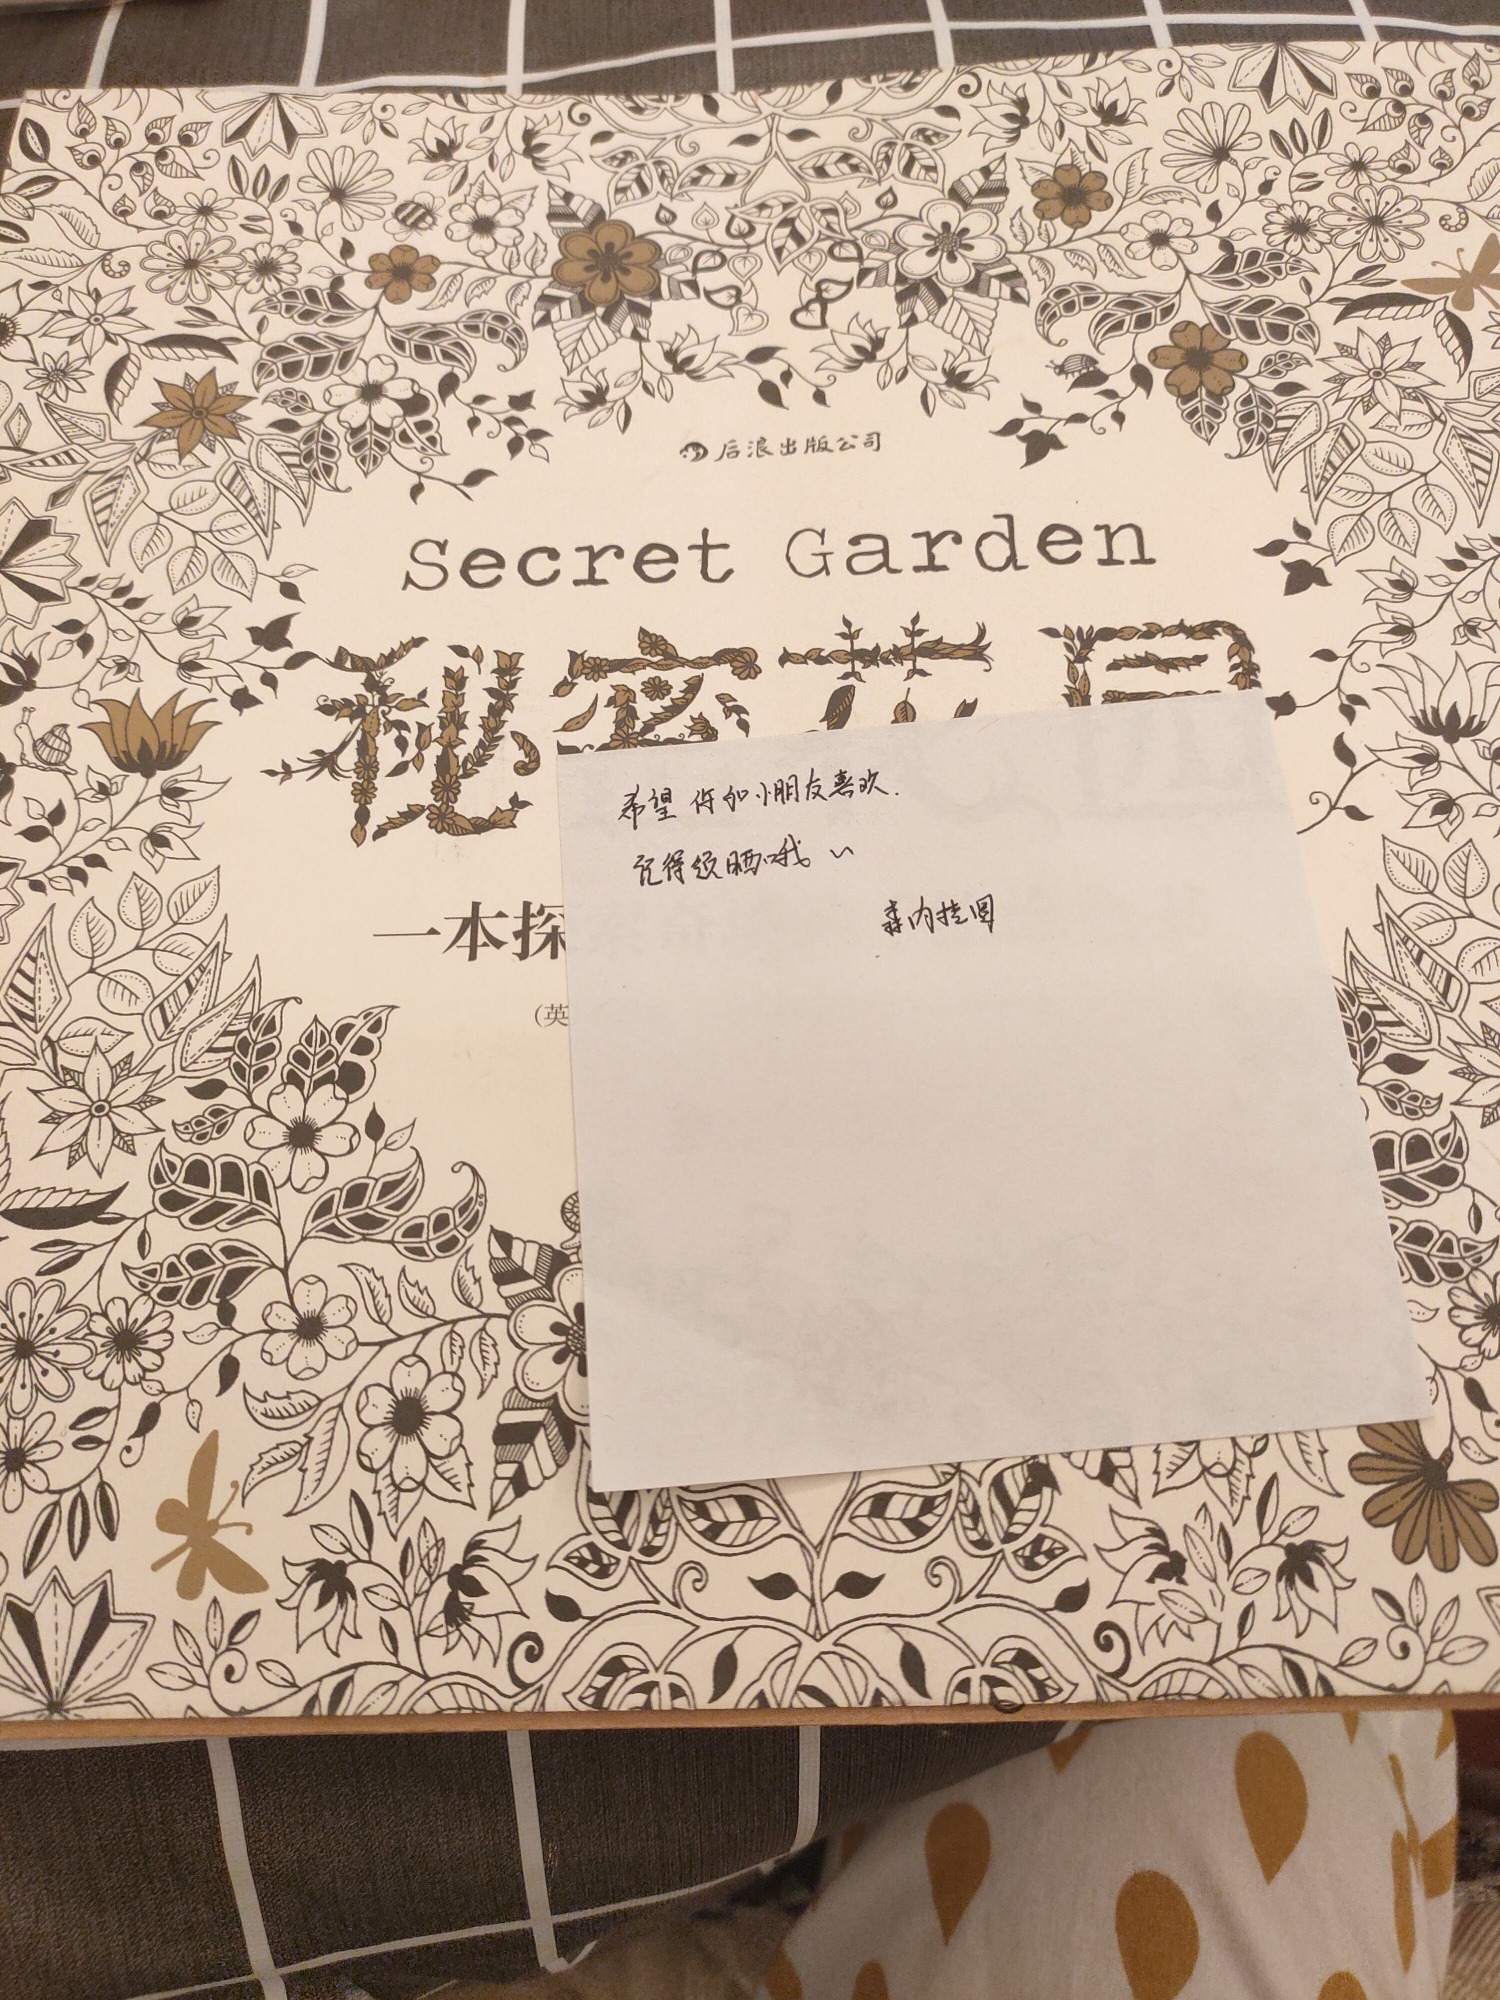 后浪出版公司
Secret Garden
秘密花园
一本探
(英
希望你和小朋友喜欢.
记得返晒哦
森内挂圆